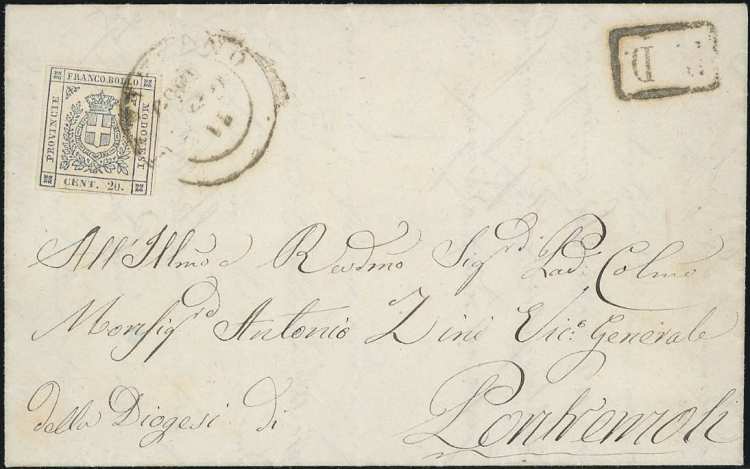 FRANCO BOLLO
PROVINCIE
MODONESI
CENT. 20.
P. D.
All'Illmo e Revdmo Sigrd Pad. Colmo
Monsigrd Antonio Zini Vico. Generale
della Diogesi di Pontremoli